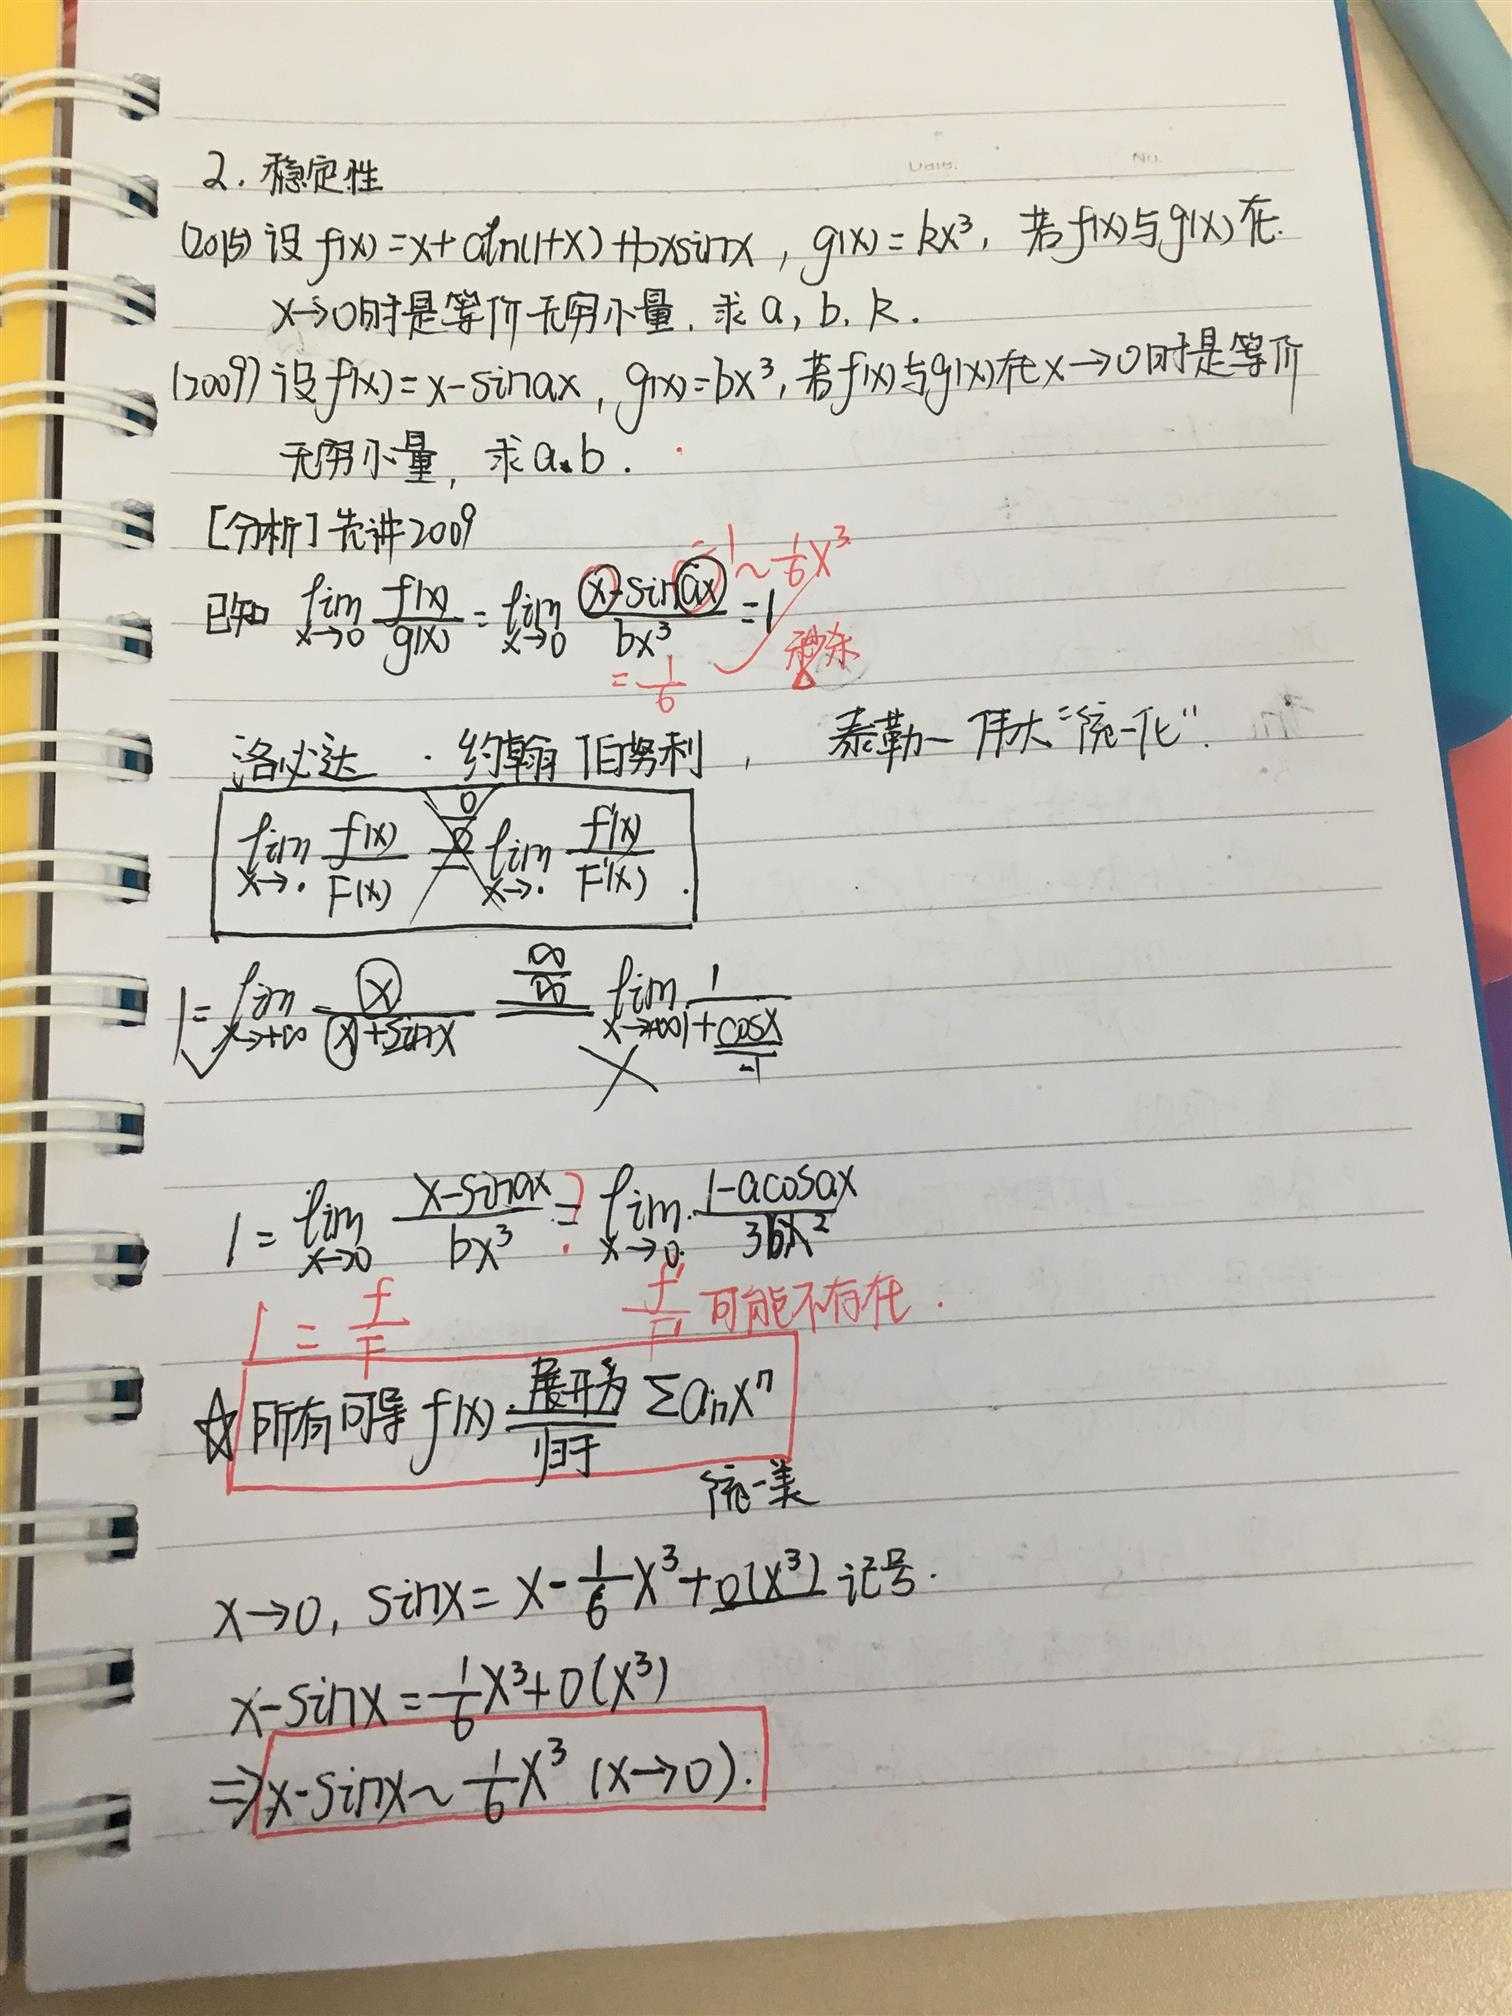 Date. No.
2. 稳定性
(2015) 设 f(x)=x+aln(1+x)+bxsinx, g(x)=kx³, 若f(x)与g(x)在
x→0时是等价无穷小量, 求a, b, k.
(2009) 设f(x)=x-sinax, g(x)=bx³, 若f(x)与g(x)在x→0时是等价
无穷小量, 求a、b.
[分析] 先讲2009
=1 ~ 1/6 x³
已知 lim x→0 f(x)/g(x) = lim x→0 (x-sinax)/(bx³) =1
= 1/6 秒杀
洛必达 · 约翰 伯努利, 泰勒—伟大“统一化”.
lim x→· f(x)/F(x) =(0/0) lim x→· f'(x)/F'(x).
1= lim x→+∞ x/(x+sinx) =(∞/∞) lim x→+∞ 1/(1+cosx)
-1
1 = lim x→0 (x-sinax)/(bx³) =? lim x→0 (1-acosax)/(3bx²)
1 = f/F f'/F' 可能不存在.
☆ 所有可导 f(x) 展开为 Σaₙxⁿ
归于
统一美
x→0, sinx = x - 1/6 x³ + o(x³) 记号.
x-sinx = 1/6 x³ + o(x³)
⇒ x-sinx ~ 1/6 x³ (x→0).